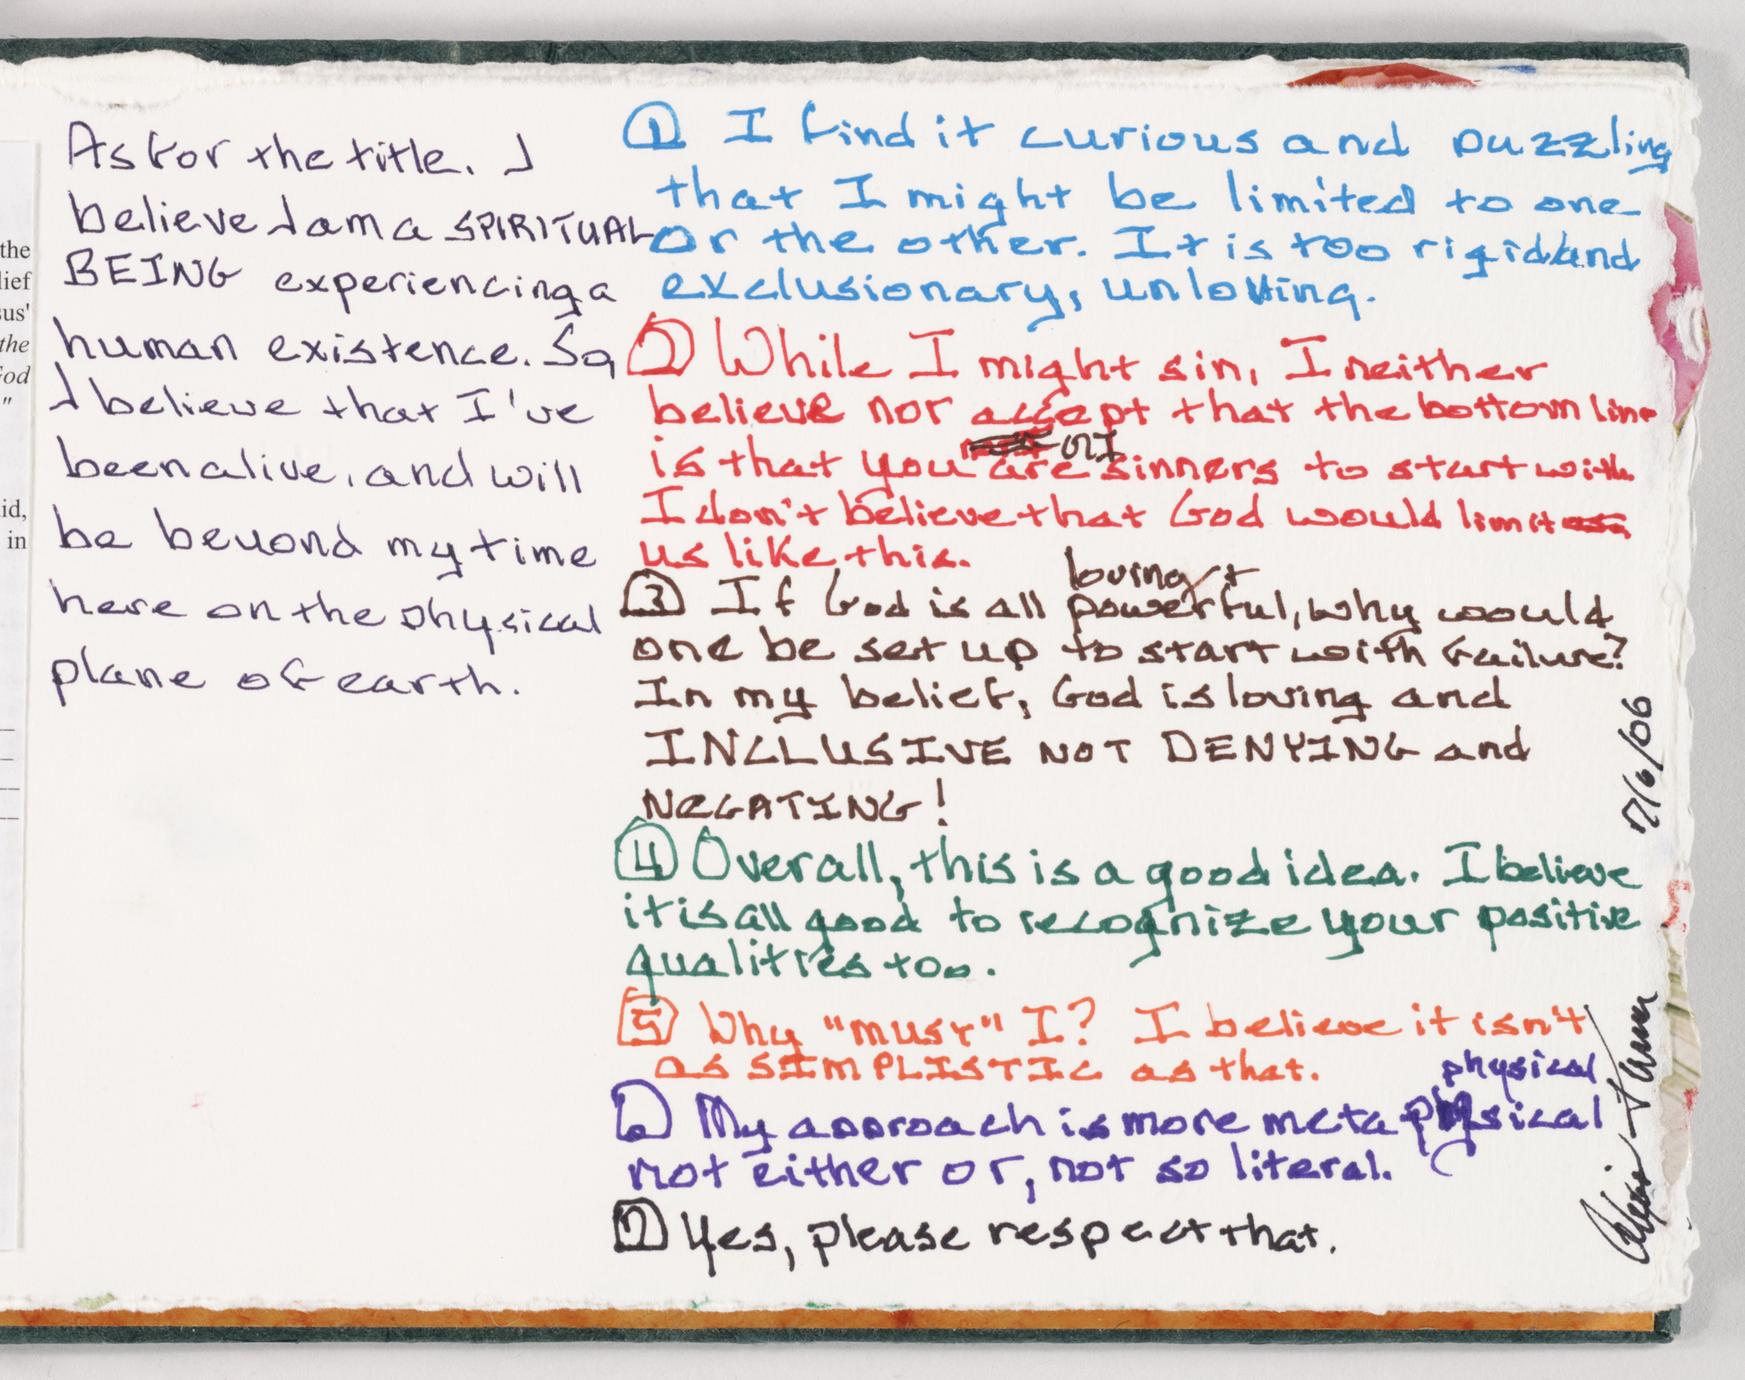 the
lief
sus'
the
God
"
id,
in
As for the title. I
believe I am a SPIRITUAL
BEING experiencing a
human existence. So,
I believe that I've
been alive, and will
be beyond my time
here on the physical
plane of earth.
1 I find it curious and puzzling
that I might be limited to one
or the other. It is too rigid and
exclusionary, unloving.
2 While I might sin, I neither
believe nor accept that the bottom line
or I
is that you are sinners to start with.
I don't believe that God would limit
us like this.
loving +
3 If God is all powerful, why would
one be set up to start with failure?
In my belief, God is loving and
INCLUSIVE NOT DENYING and
NEGATING!
4 Overall, this is a good idea. I believe
it is all good to recognize your positive
qualities too.
5 Why "must" I? I believe it isn't
as SIMPLISTIC as that.
physical
6 My approach is more metaphysical
not either or, not so literal.
7 Yes, please respect that.
7/6/06